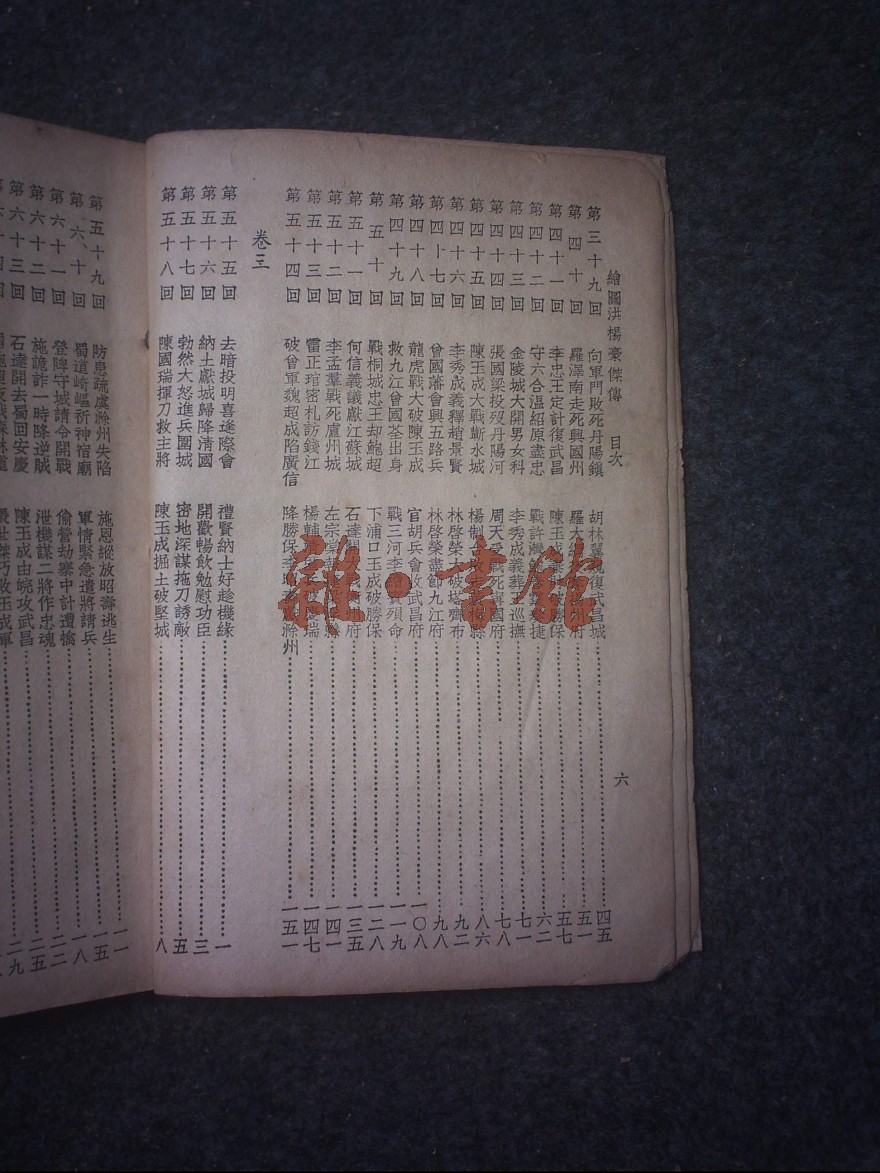 繪圖洪楊豪傑傳 目次 六
第三十九回 向軍門敗死丹陽鎮 胡林翼 復武昌城 四五
第四十回 羅澤南走死興國州 羅大 州府 五一
第四十一回 李忠王定計復武昌 陳玉成 勝保 五七
第四十二回 守六合溫紹原盡忠 戰許灣 捷 六二
第四十三回 金陵城大開男女科 李秀成義葬王巡撫 七一
第四十四回 張國梁投歿丹陽河 周天受戰死寧國府 七八
第四十五回 陳玉成大戰蘄水城 楊制 縣 八六
第四十六回 李秀成義釋趙景賢 林啓榮大破塔齊布 九二
第四十七回 曾國藩會興五路兵 林啓榮盡節九江府 九八
第四十八回 龍虎戰大破陳玉成 官胡兵會收武昌府 一〇八
第四十九回 救九江曾國荃出身 戰三河李續賓殞命 一一九
第五十回 戰桐城忠王却鮑超 下浦口玉成破勝保 一二八
第五十一回 何信義議獻江蘇城 石達開 府 一三五
第五十二回 李孟羣戰死廬州城 左宗棠 一四一
第五十三回 雷正琯密札訪錢江 楊輔 慶瑞 一四七
第五十四回 破曾軍魏超成陷廣信 降勝保李 滁州 一五一
卷三
第五十五回 去暗投明喜逢際會 禮賢納士好趁機緣 一
第五十六回 納土獻城歸降清國 開歡暢飲勉慰功臣 三
第五十七回 勃然大怒進兵圍城 密地深謀拖刀誘敵 五
第五十八回 陳國瑞揮刀救主將 陳玉成掘土破堅城 八
第五十九回 防患疏虞滁州失陷 施恩縱放昭壽逃生 一一
第六十回 蜀道崎嶇祈神宿廟 軍情緊急遣將請兵 一八
第六十一回 登陴守城請令開戰 偷營劫寨中計遭擒 二二
第六十二回 施詭詐一時降逆賊 泄機謀二將作忠魂 二五
第六十三回 石達開去蜀回安慶 陳玉成由皖攻武昌 二九
雜·書館